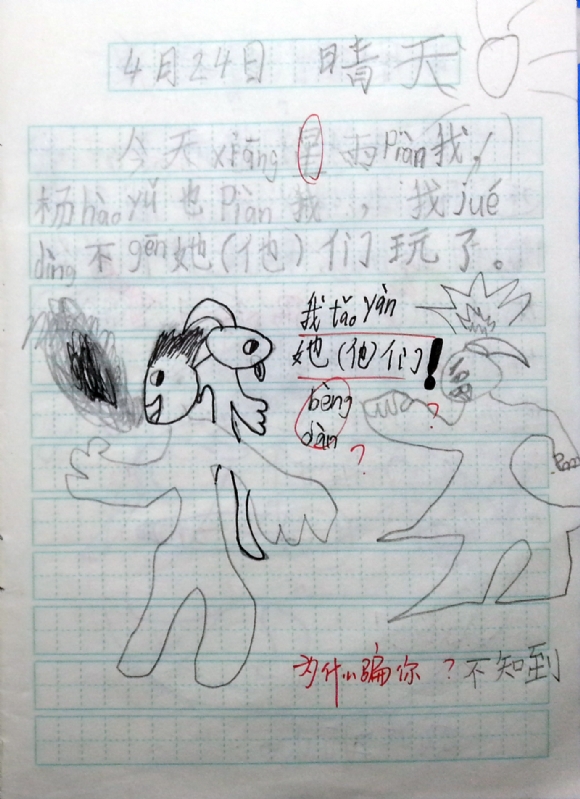 4月24日 晴天
今天xiāng 星雨Piàn我,
杨hào yǔ也Piàn我,我jué
dìng不gēn她(他)们玩了。
我tǎo yàn
她(他)们!
bèng
dàn
?
?
为什么骗你?不知到